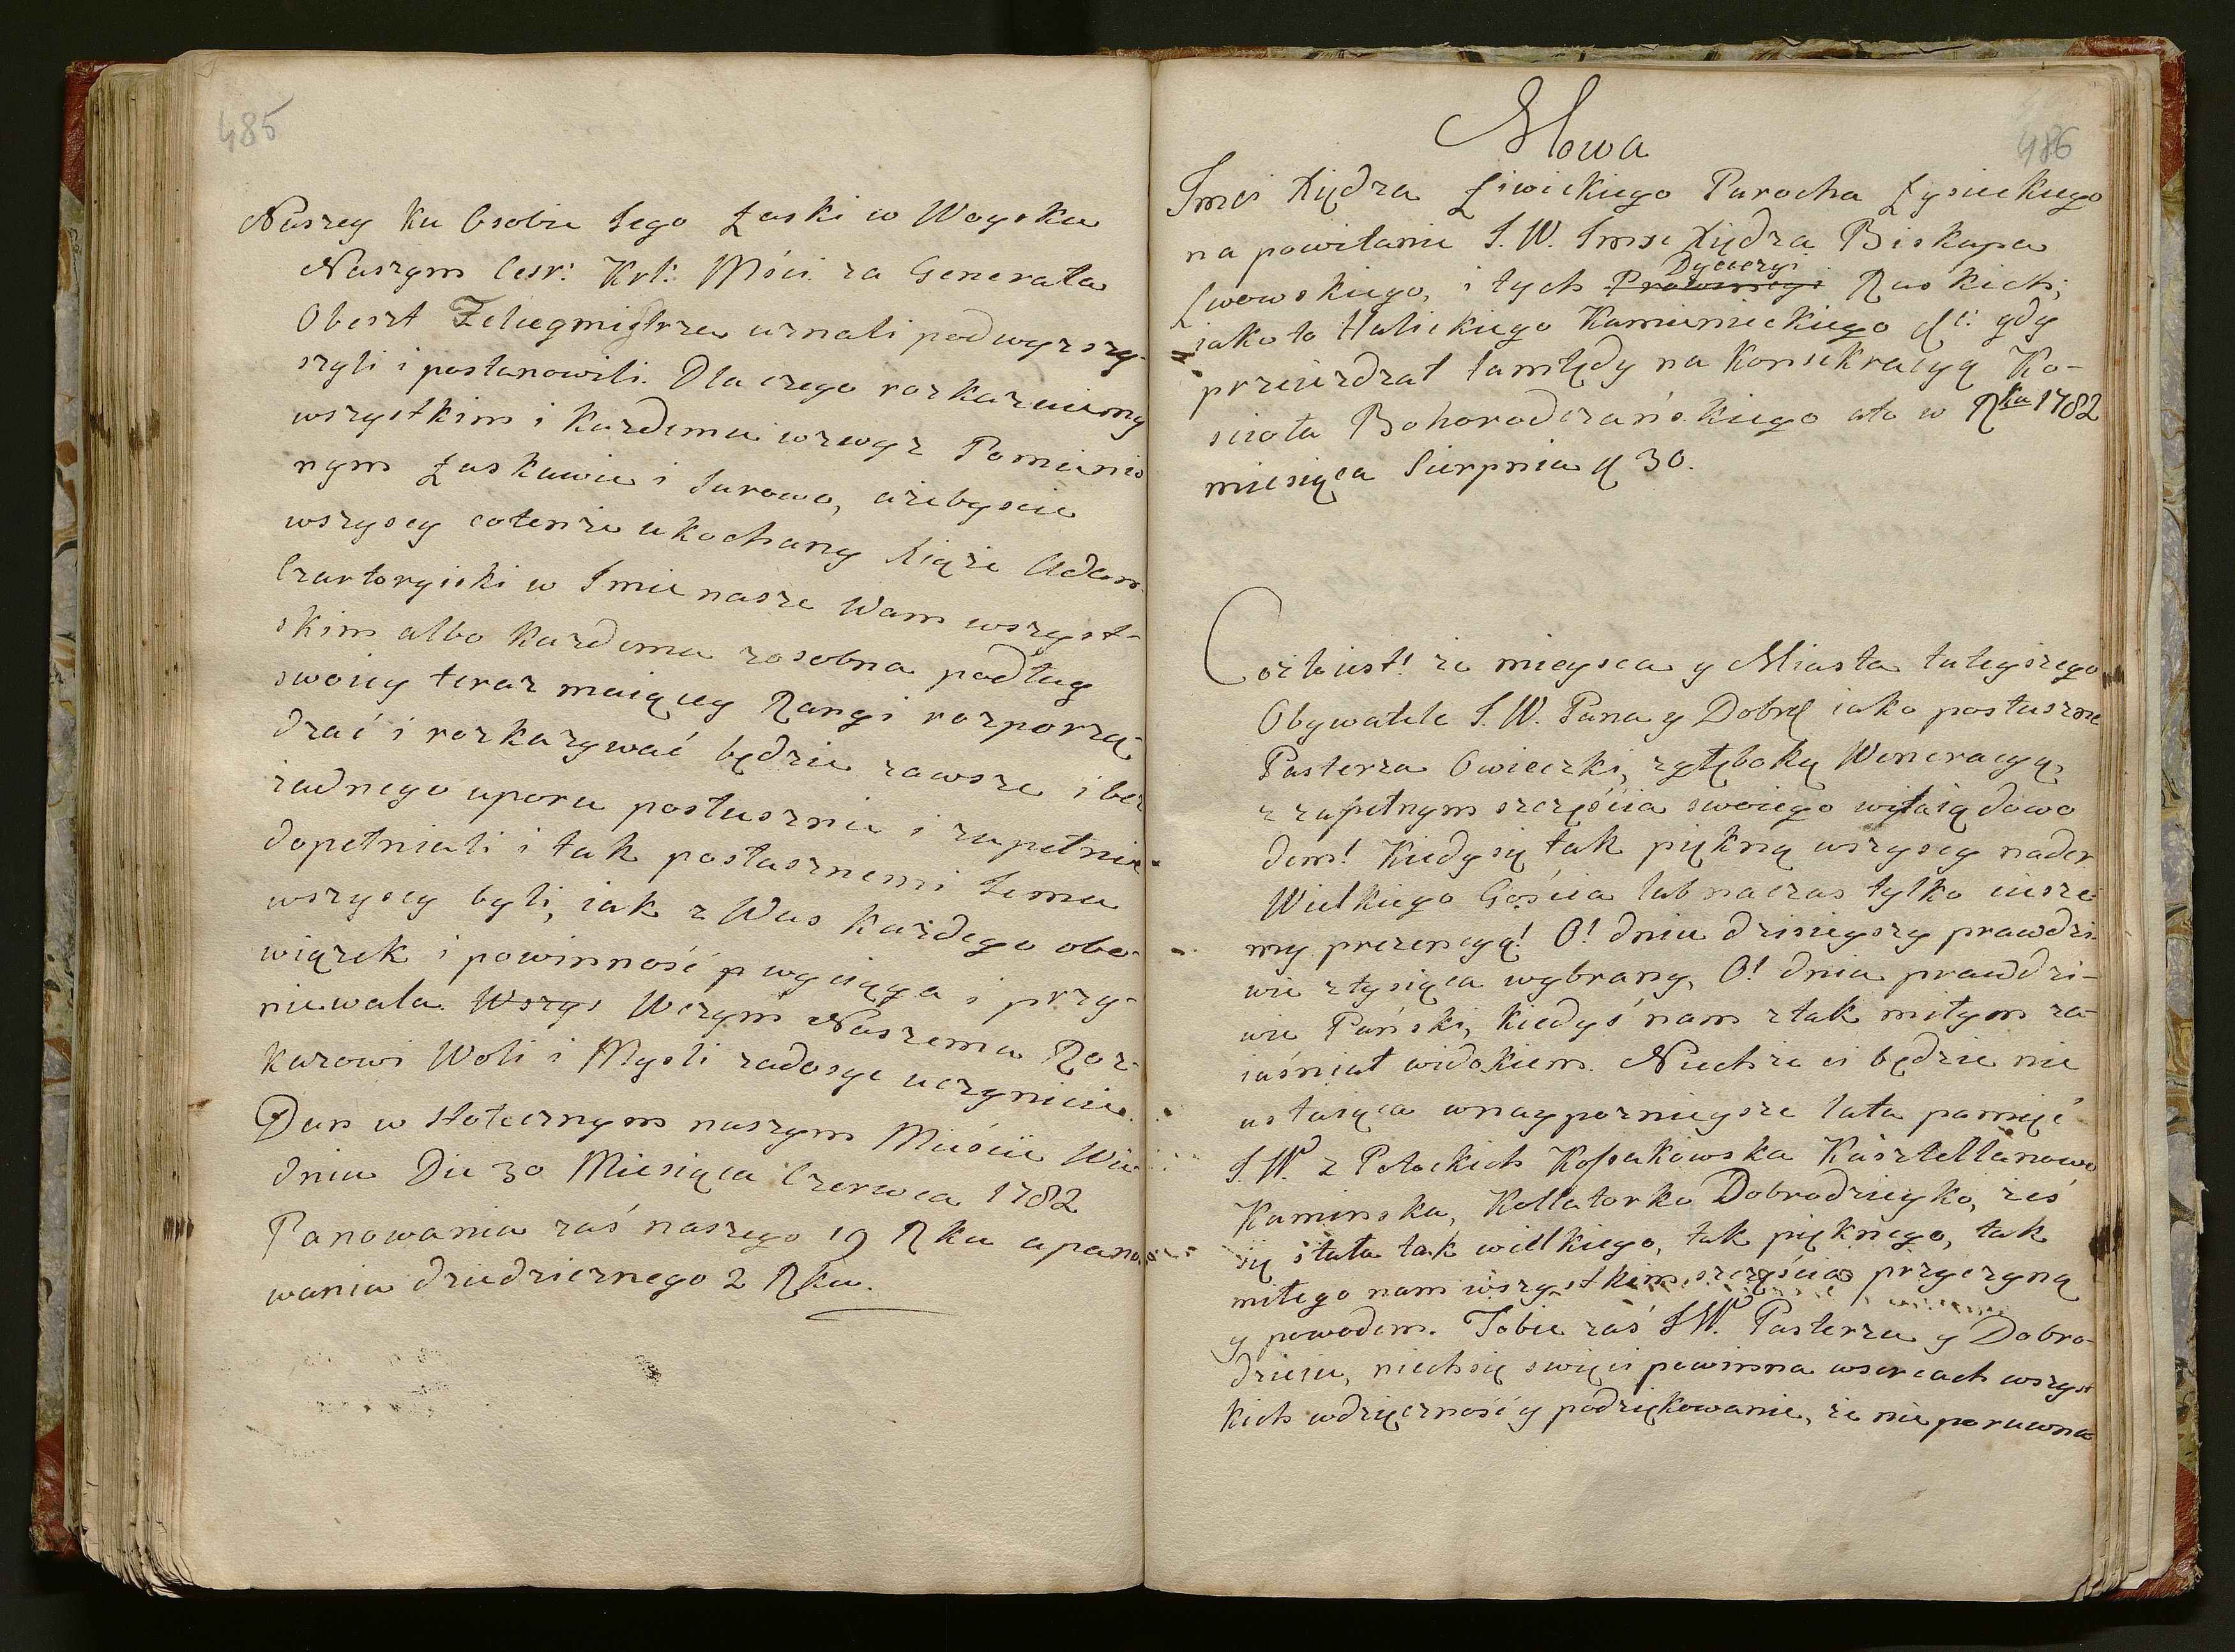 485
Naszey ku Osobie Jego Łaski w Woysku
Naszym Cesr: Krl: Mści za Generała
Obeszt Zeliegmistrza uznali podwyższy-
szyli i postanowili. Dla czego rozkazuiemy
wszystkim i każdemu wzwyż Pomienio
nym Łaskawie i Surowo, ażebyscie
wszyscy cotenże ukochany Xiąże Adam
Czartoryiski w Imie nasze Wam wszyst-
skim albo każdemu zosobna podług
swoiey teraz maiącey Rangi rozporzą-
dzać i rozkazywać będzie zawsze i bez
żadnego uporu posłusznie i zupełnie
dopełniali i tak posłusznemi Jemu
wszyscy byli, iak z Was każdego obo-
wiązek i powinność p wyciąga i przy-
niewala. Wszys Wczym Naszemu Roz-
kazowi Woli i Mysli zadosyc uczynicie.
Dan w stołecznym naszym Mieście Wie
dniu Die 30 Miesiąca Czerwca 1782
Panowania zaś naszego 19 Rku a pano
wania dziedzicznego 2 Rku.
486
Mowa
Imci Xiędza Łiwickiego Parocha Łysieckiego
na powitanie J. W. Imse Xiędza Biskupa
Dyecezyi
Lwowskiego, i tych Prowincyi Ruskich,
iako to Halickiego Kamienieckiego etc: gdy
przeieżdzał tamtędy na Konsekracyą Ko-
scioła Bohorodczańskiego ato w Rku 1782
miesiąca Sierpnia d 30.
Coż to iest! że mieysca y Miasta tuteyszego
Obywatele J. W. Pana y Dobrę iako posłuszne
Pasterza Owieczki, zgłęboką Weneracyą,
z zupełnym szczęścia swoiego witaią dowo
dem! Kiedy się tak piękną wszyscy nader
Wielkiego Gościa lub naczas tylko ciesze-
my prezencyą! O! dniu dzisieyszy prawdzi-
wie z tysiąca wybrany, O! dniu prawdzi-
wie Pański, kiedyś nam z tak miłym za-
iaśniał widokiem. Niechże ci będzie nie
ustaiąca wnaypoznieysze lata pamięć
J. W. z Potockich Kossakowska Kasztellanowo
Kaminska, Kollatorko Dobrodzieyko, żeś
się stała tak wielkiego, tak pięknego, tak
miłego nam wszystkim szczęścia przyczyną
y powodem. Tobie zaś J. W. Pasterzu y Dobro-
dzieiu, niech się swięci powinna wsercach wszyst
kich wdzięczność y podziękowanie, że nieporuwna